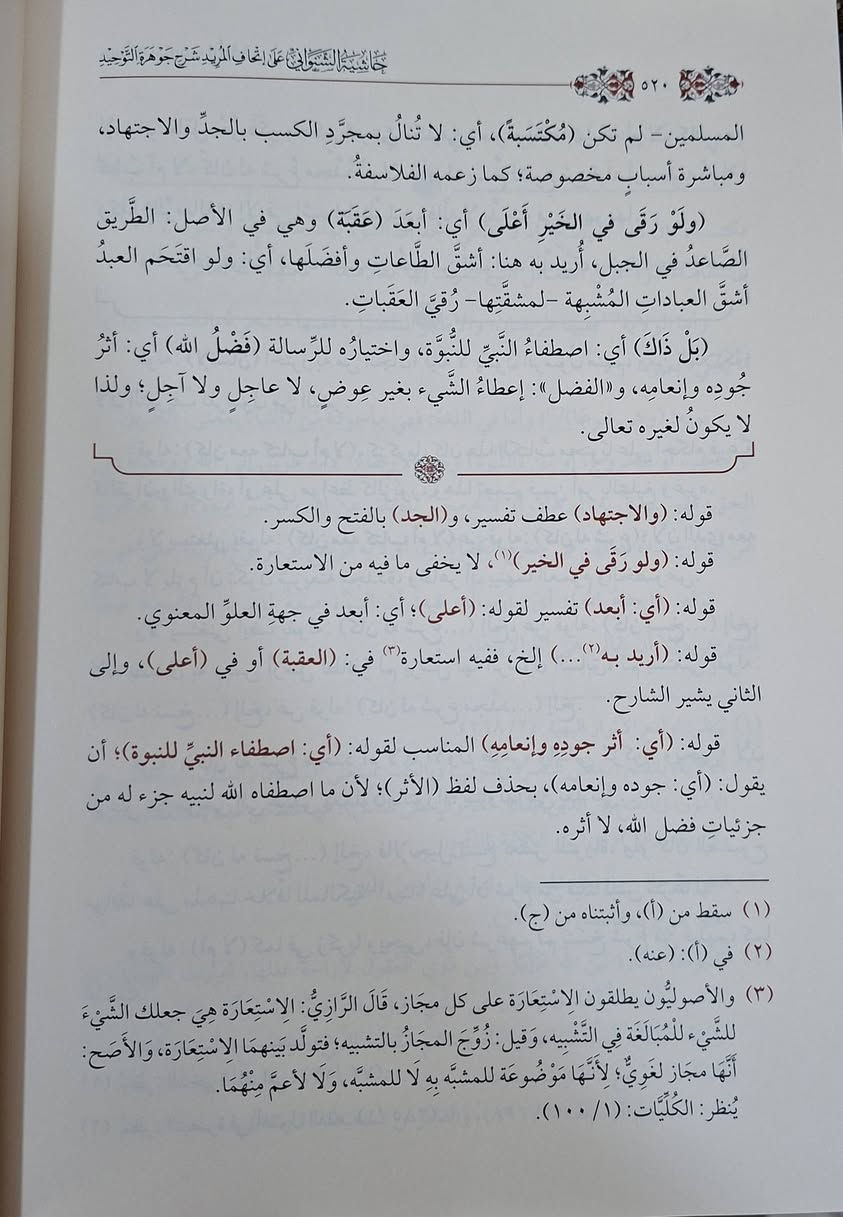 حَاشِيَةُ الشَّنَوَانِيِّ عَلَى إِتْحَافِ الْمُرِيدِ شَرْحِ جَوْهَرَةِ التَّوْحِيدِ
٥٢٠
المسلمين- لم تكن (مُكْتَسَبةً)، أي: لا تُنالُ بمجرَّدِ الكسب بالجدِّ والاجتهاد،
ومباشرة أسبابٍ مخصوصة؛ كما زعمه الفلاسفةُ.
(ولَوْ رَقَى في الخَيْرِ أَعْلَى) أي: أبعَدَ (عَقَبَة) وهي في الأصل: الطَّريق
الصَّاعدُ في الجبل، أُريد به هنا: أشقَّ الطَّاعاتِ وأفضَلَها، أي: ولو اقتَحَم العبدُ
أشقَّ العباداتِ المُشْبِهة -لمشقَّتِها- رُقيَّ العَقَباتِ.
(بَلْ ذَاكَ) أي: اصطفاءُ النَّبيِّ للنُّبوَّة، واختيارُه للرِّسالة (فَضْلُ الله) أي: أثرُ
جُودِه وإنعامِه، و«الفضل»: إعطاءُ الشَّيء بغير عِوضٍ، لا عاجِلٍ ولا آجِلٍ؛ ولذا
لا يكونُ لغيره تعالى.
قوله: (والاجتهاد) عطف تفسير، و(الجد) بالفتح والكسر.
قوله: (ولو رَقَى في الخير)(١)، لا يخفى ما فيه من الاستعارة.
قوله: (أي: أبعد) تفسير لقوله: (أعلى)؛ أي: أبعد في جهةِ العلوِّ المعنوي.
قوله: (أريد به(٢)...) إلخ، ففيه استعارة(٣) في: (العقبة) أو في (أعلى)، وإلى
الثاني يشير الشارح.
قوله: (أي: أثر جودِهِ وإنعامِهِ) المناسب لقوله: (أي: اصطفاء النبيِّ للنبوة)؛ أن
يقول: (أي: جوده وإنعامه)، بحذف لفظ (الأثر)؛ لأن ما اصطفاه الله لنبيه جزء له من
جزئياتِ فضل الله، لا أثره.
(١) سقط من (أ)، وأثبتناه من (ج).
(٢) في (أ): (عنه).
(٣) والأصوليُّون يطلقون الِاسْتِعَارَة على كل مجَاز، قَالَ الرَّازِيُّ: الِاسْتِعَارَة هِيَ جعلك الشَّيْءَ
للشَّيْء للْمُبَالَغَة فِي التَّشْبِيه، وَقيل: زُوِّجَ المجَازُ بالتشبيه؛ فتولَّد بَينهمَا الِاسْتِعَارَة، وَالأَصَح:
أَنَّهَا مجَاز لغَوِيٌّ؛ لِأَنَّهَا مَوْضُوعَة للمشبَّه بِهِ لَا للمشبَّه، وَلَا لأعمَّ مِنْهُمَا.
يُنظر: الكُلِّيَّات: (١/ ١٠٠).